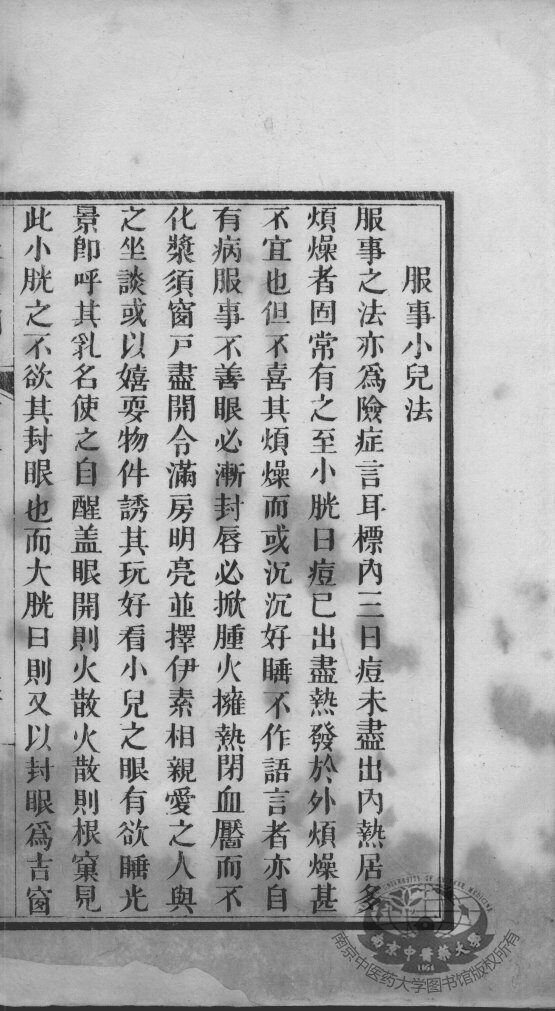 服事小兒法
服事之法亦爲險症言耳標內三日痘未盡出內熱居多
煩燥者固常有之至小胱日痘已出盡熱發於外煩燥甚
不宜也但不喜其煩燥而或沉沉好睡不作語言者亦自
有病服事不善眼必漸封唇必掀腫火擁熱閉血靨而不
化漿須窗戸盡開令滿房明亮並擇伊素相親愛之人與
之坐談或以嬉耍物件誘其玩好看小兒之眼有欲睡光
景卽呼其乳名使之自醒盖眼開則火散火散則根窠見
此小胱之不欲其封眼也而大胱日則又以封眼爲吉窗
南京中醫藥大學
1954
南京中医药大学图书馆版权所有